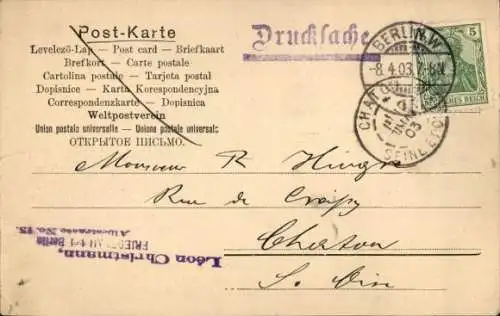 Post-Karte
Levelező-Lap — Post card — Briefkaart
Brefkort — Carte postale
Cartolina postale — Tarjeta postal
Dopisnice — Karta Korespondencyjna
Correspondenzkarte — Dopisnica
Weltpostverein
Union postale universelle — Unione postale universale
ОТКРЫТОЕ ПИСЬМО.
Drucksache
BERLIN.W.
-8.4.03.7-8N.
5
CHATOU
SEINE ET OISE
03
Monsieur R
Rue de
Chatou
S. Oise
Léon Christmann,
FRIEDENAU bei Berlin
No. 15.